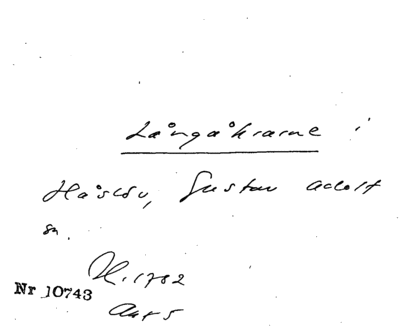 Långåkrarne i
Håslöv, Gustav Adolf
sn.
H. 1782
Nr 10743
Akt 5